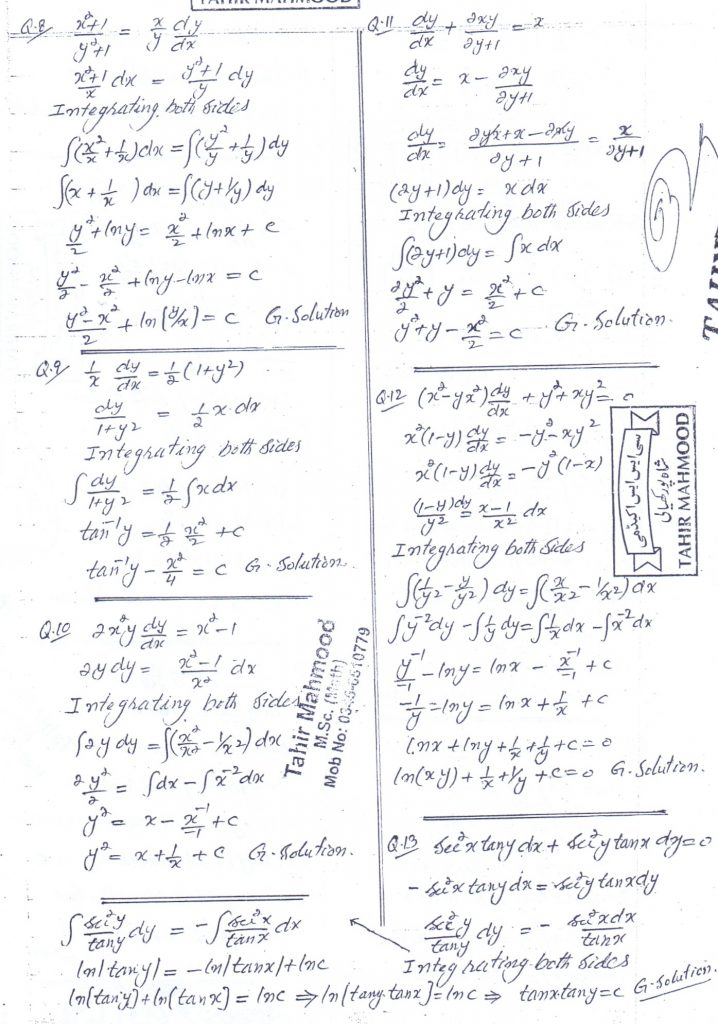 TAHIR MAHMOOD
Q.8 (x²+1)/(y²+1) = x/y dy/dx
(x²+1)/x dx = (y²+1)/y dy
Integrating both sides
∫(x²/x + 1/x)dx = ∫(y²/y + 1/y)dy
∫(x + 1/x) dx = ∫(y + 1/y) dy
y²/2 + lny = x²/2 + lnx + c
y²/2 - x²/2 + lny - lnx = c
(y²-x²)/2 + ln(y/x) = c G.Solution
Q.9 1/x dy/dx = 1/2 (1+y²)
dy/(1+y²) = 1/2 x.dx
Integrating both sides
∫ dy/(1+y²) = 1/2 ∫x dx
tan⁻¹y = 1/2 x²/2 + c
tan⁻¹y - x²/4 = c G.Solution
Q.10 2x²y dy/dx = x²-1
2y dy = (x²-1)/x² dx
Integrating both sides
∫2y dy = ∫(x²/x² - 1/x²) dx
2y²/2 = ∫dx - ∫x⁻²dx
y² = x - x⁻¹/-1 + c
y² = x + 1/x + c G.Solution.
Tahir Mahmood
M.Sc. (Math)
Mob No:
Q.11 dy/dx + 2xy/(2y+1) = x
dy/dx = x - 2xy/(2y+1)
dy/dx = (2yx+x-2xy)/(2y+1) = x/(2y+1)
(2y+1)dy = x dx
Integrating both sides
∫(2y+1)dy = ∫x dx
2y²/2 + y = x²/2 + c
y²+y - x²/2 = c G.Solution.
Q.12 (x²-yx²)dy/dx + y²+xy² = 0
x²(1-y) dy/dx = -y²-xy²
x²(1-y) dy/dx = -y²(1-x)
(1-y)dy/y² = (x-1)/x² dx
Integrating both sides
∫(1/y² - y/y²) dy = ∫(x/x² - 1/x²) dx
∫y⁻²dy - ∫1/y dy = ∫1/x dx - ∫x⁻²dx
y⁻¹/-1 - lny = lnx - x⁻¹/-1 + c
-1/y - lny = lnx + 1/x + c
lnx + lny + 1/x + 1/y + c = 0
ln(xy) + 1/x + 1/y + c = 0 G.Solution.
سی ایس ایس اکیڈمی
TAHIR MAHMOOD
Q.13 sec²x tany dx + sec²y tanx dy = 0
- sec²x tany dx = sec²y tanx dy
sec²y/tany dy = - sec²x dx/tanx
Integrating both sides
∫ sec²y/tany dy = -∫ sec²x/tanx dx
ln|tany| = -ln|tanx| + lnc
ln(tany) + ln(tanx) = lnc ⇒ ln(tany.tanx) = lnc ⇒ tanx.tany = c G.Solution.